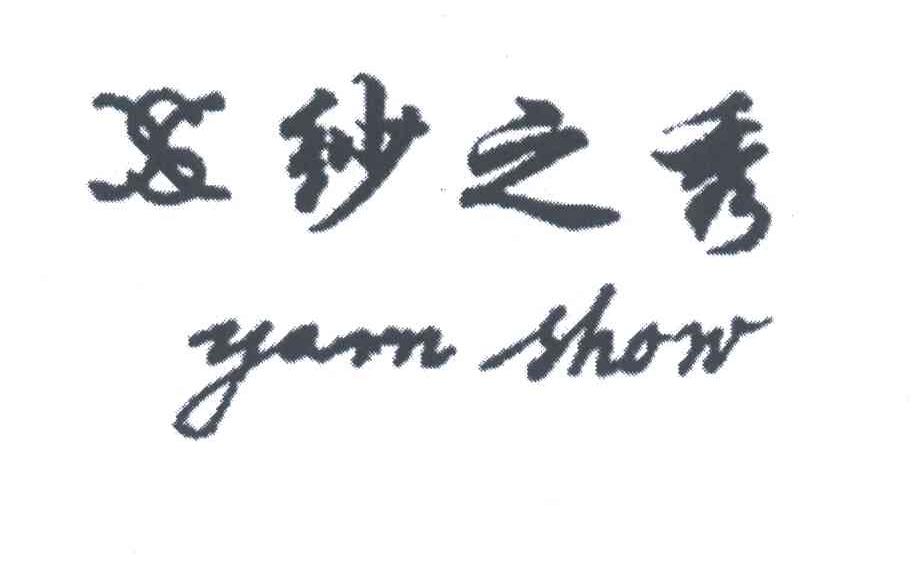 纱之秀
yarn show